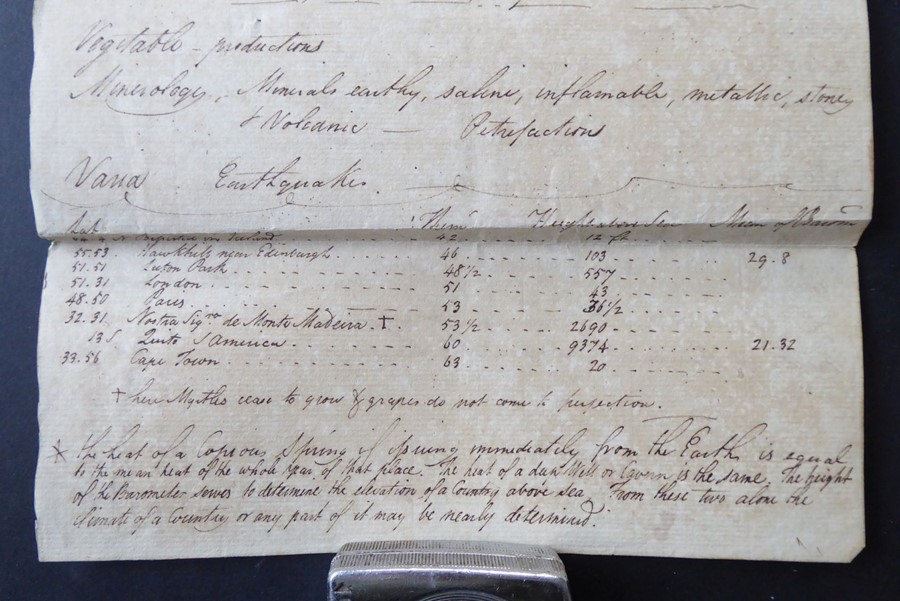 Vegitable - productions
Minerology, Minerals earthy, saline, inflamable, metallic, stoney
& Volcanic — Petrefactions
Varia Earthquakes.
Lat Therm Height above Sea Mean of Barom
in Iceland 42 12 ft
55.53. Hawkhill near Edinburgh 46 103 29.8
51.51 Luton Park 48½ 557
51.31 London 51 43
48.50 Paris 53 36½
32.31. Nostra Sigra de Monte Madeira. † 53½ 2690
13 S Quito S America 60 9374 21.32
33.56 Cape Town 63 20
† here Myrtles cease to grow & grapes do not come to perfection.
* the heat of a Copious Spring if issuing immediately from the Earth is equal
to the mean heat of the whole Year of that place. The heat of a deep Well or Cavern is the same. The height
of the Barometer serves to determine the elevation of a Country above sea. From these two alone the
Climate of a Country or any part of it may be nearly determined.